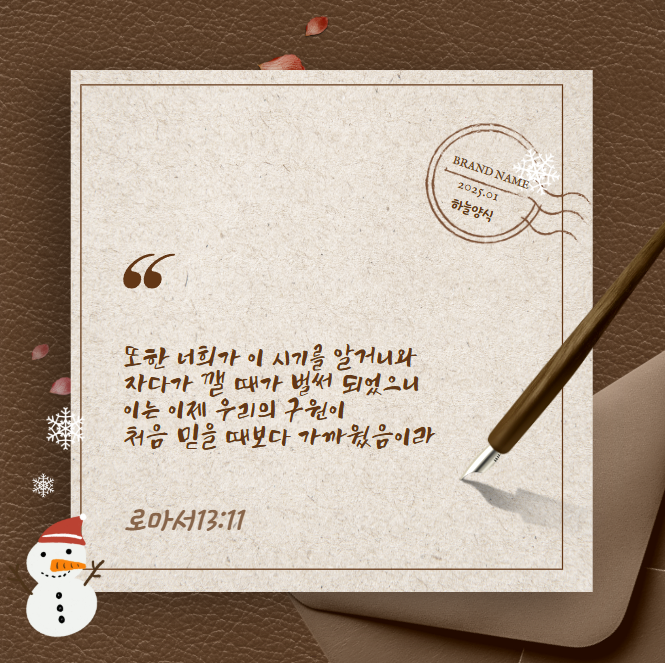 BRAND NAME
2025.01
하늘양식
“
또한 너희가 이 시기를 알거니와
자다가 깰 때가 벌써 되었으니
이는 이제 우리의 구원이
처음 믿을 때보다 가까웠음이라
로마서13:11